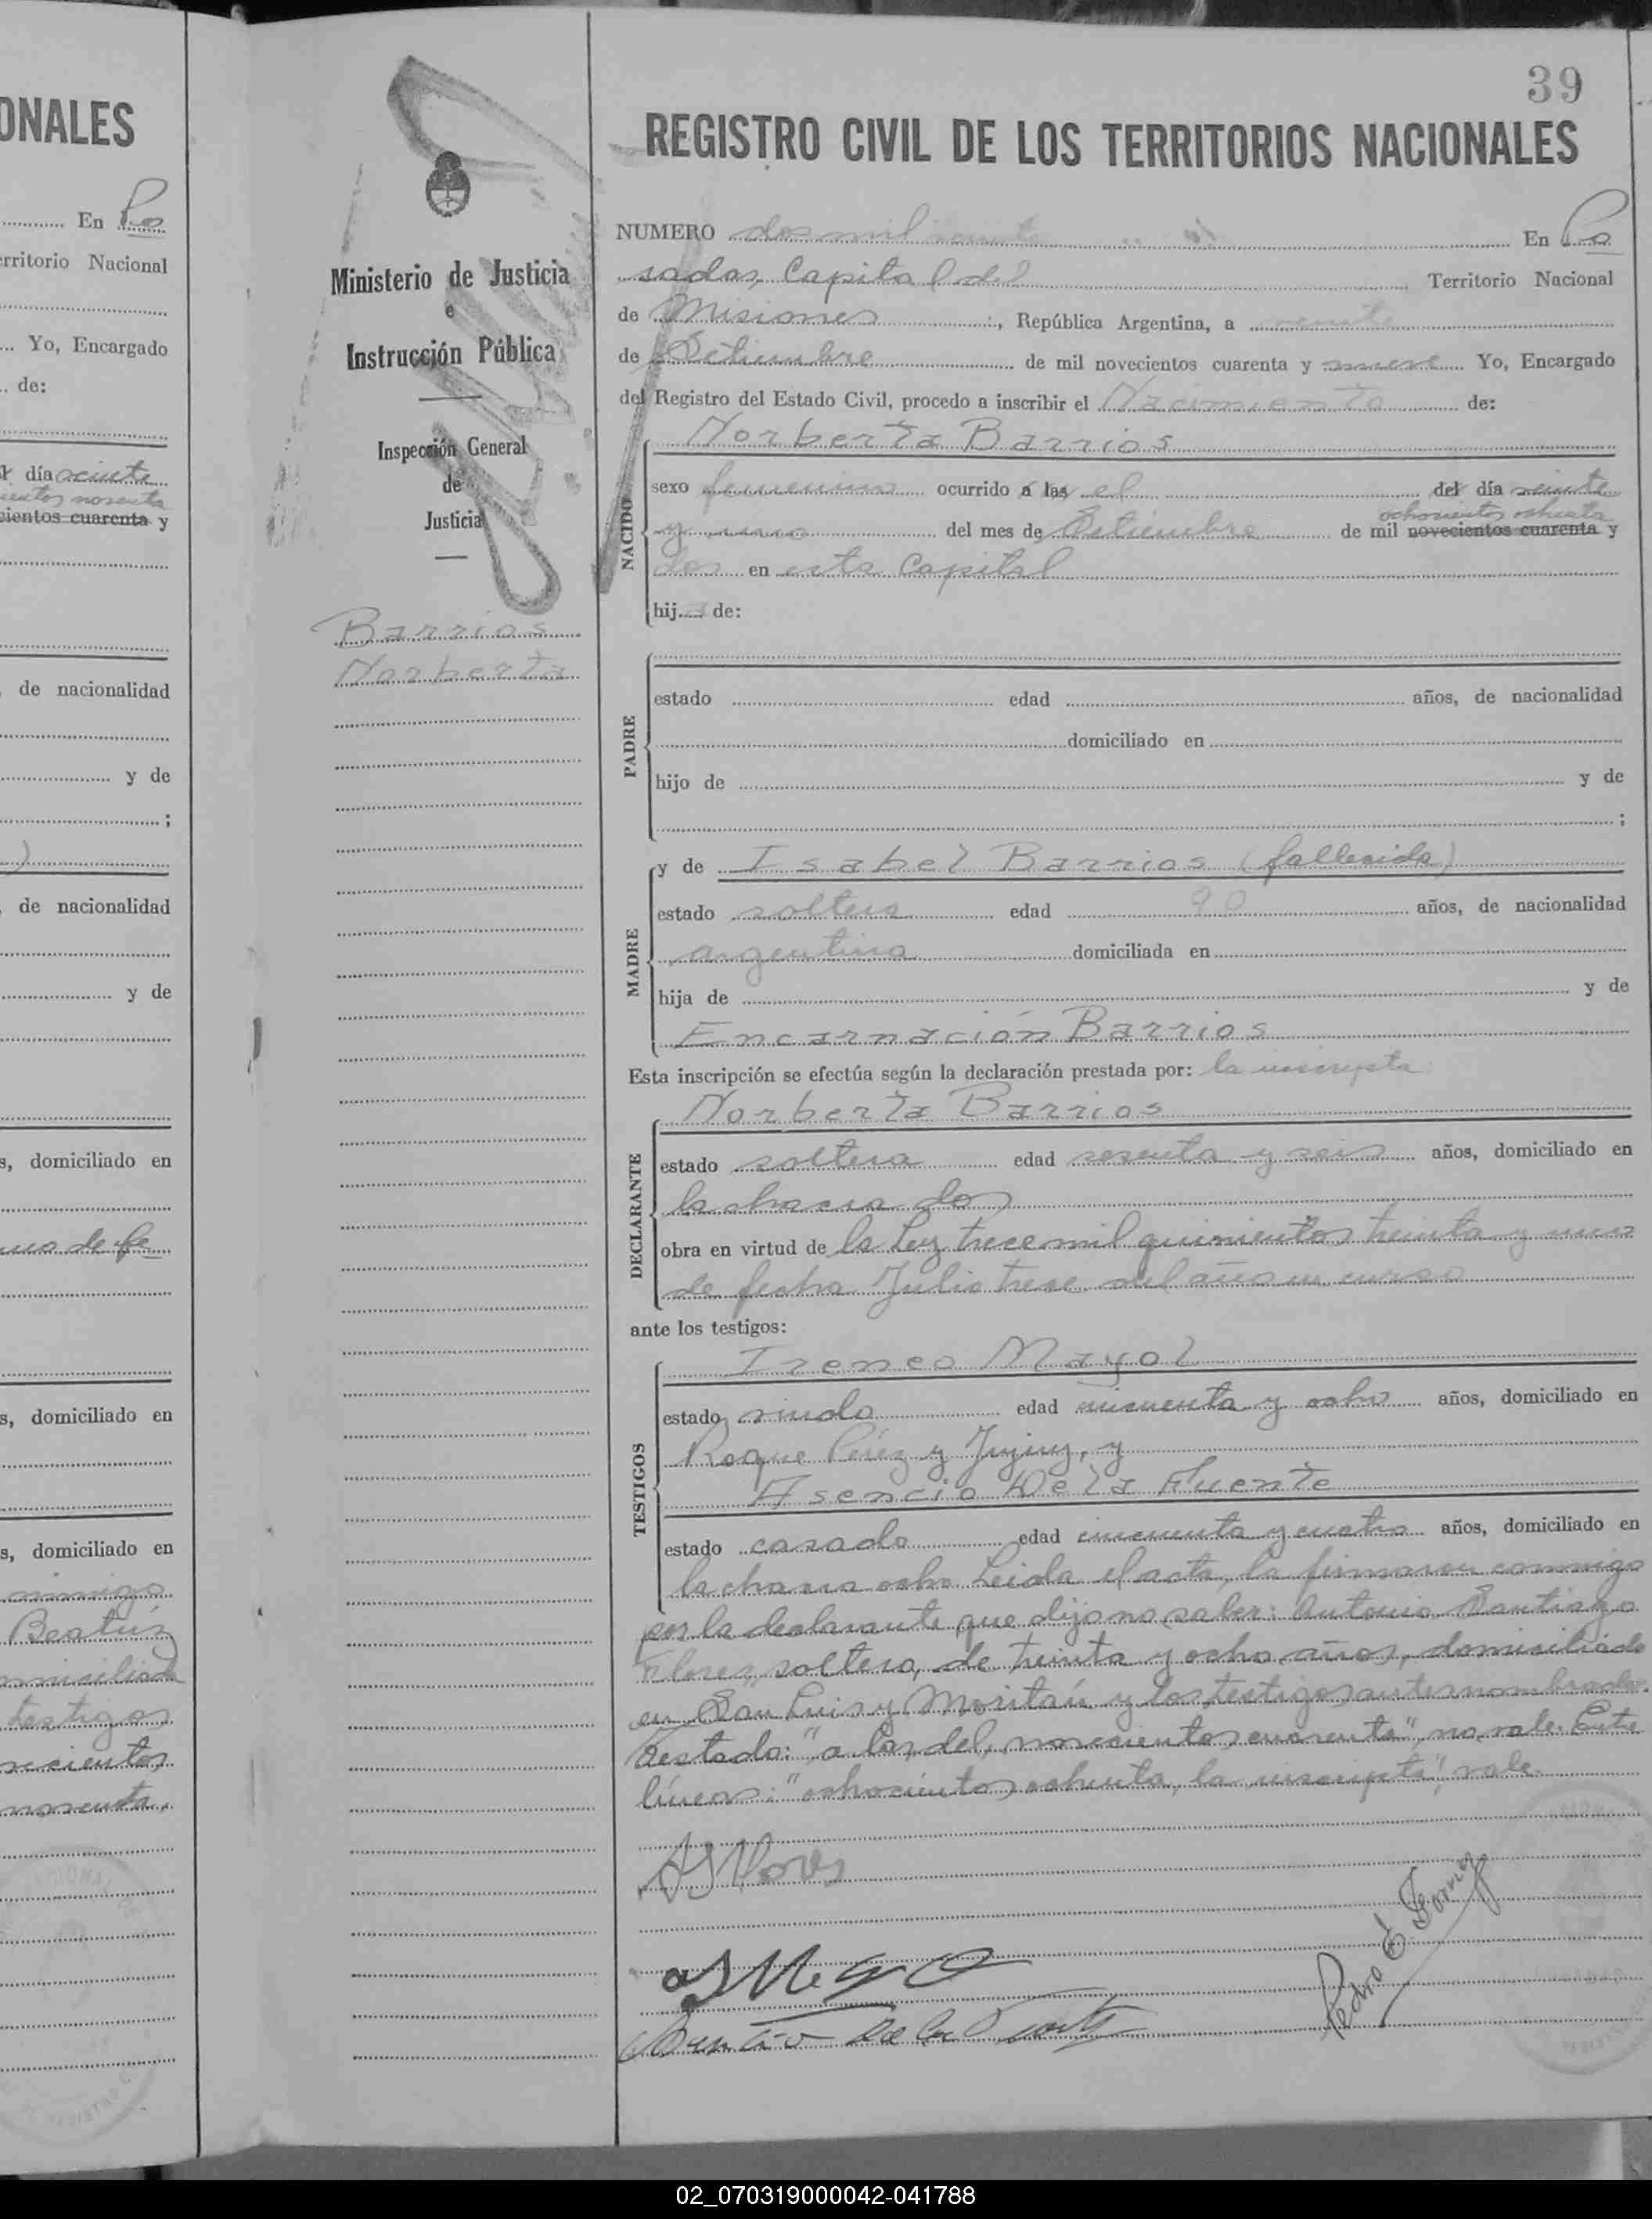 ONALES
En Po
erritorio Nacional
Yo, Encargado
de:
día veinte
cientos noventa
cientos cuarenta y
de nacionalidad
y de
;
)
de nacionalidad
y de
s, domiciliado en
de fe
s, domiciliado en
s, domiciliado en
conmigo
Beatriz
domiciliada
testigos
novecientos
noventa.
Ministerio de Justicia
e
Instrucción Pública
Inspección General
de
Justicia
Barrios
Norberta
39
REGISTRO CIVIL DE LOS TERRITORIOS NACIONALES
NUMERO dos mil En Po
sadas, Capital del Territorio Nacional
de Misiones, República Argentina, a veinte
de Setiembre de mil novecientos cuarenta y nueve Yo, Encargado
del Registro del Estado Civil, procedo a inscribir el Nacimiento de:
Norberta Barrios
NACIDO
sexo femenino ocurrido á las el del día veinte
ochocientos ochenta
y uno del mes de Setiembre de mil novecientos cuarenta y
dos en esta Capital
hija de:
PADRE
estado edad años, de nacionalidad
domiciliado en
hijo de y de
;
MADRE
y de Isabel Barrios (fallecida)
estado soltera edad 90 años, de nacionalidad
argentina domiciliada en
hija de y de
Encarnación Barrios
Esta inscripción se efectúa según la declaración prestada por: la inscripta
DECLARANTE
Norberta Barrios
estado soltera edad sesenta y seis años, domiciliado en
la chacra dos
obra en virtud de la Ley trece mil quinientos treinta y uno
de fecha Julio trece del año en curso
ante los testigos:
TESTIGOS
Ireneo Mayol
estado viudo edad cincuenta y ocho años, domiciliado en
Roque Pérez y Jujuy, y
Asencio De la Fuente
estado casado edad cincuenta y cuatro años, domiciliado en
la chacra ocho Leida el acta, la firmaron conmigo
por la declarante que dijo no saber: Antonio Santiago
Flores, soltero, de treinta y ocho años, domiciliado
en San Luis y Moritán y los testigos antes nombrados.
Testado: "a las, del, novecientos cuarenta", no vale. Entre
líneas: "ochocientos ochenta, la inscripta", vale.
AS Flores
Asencio De la Fuente
02_070319000042-041788